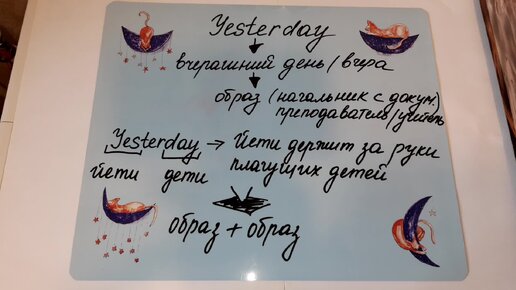 Yesterday
вчерашний день / вчера
образ (начальник с докум)
преподаватель / учитель
Yesterday → Йети держит за руки
йети дети плачущих детей
образ + образ